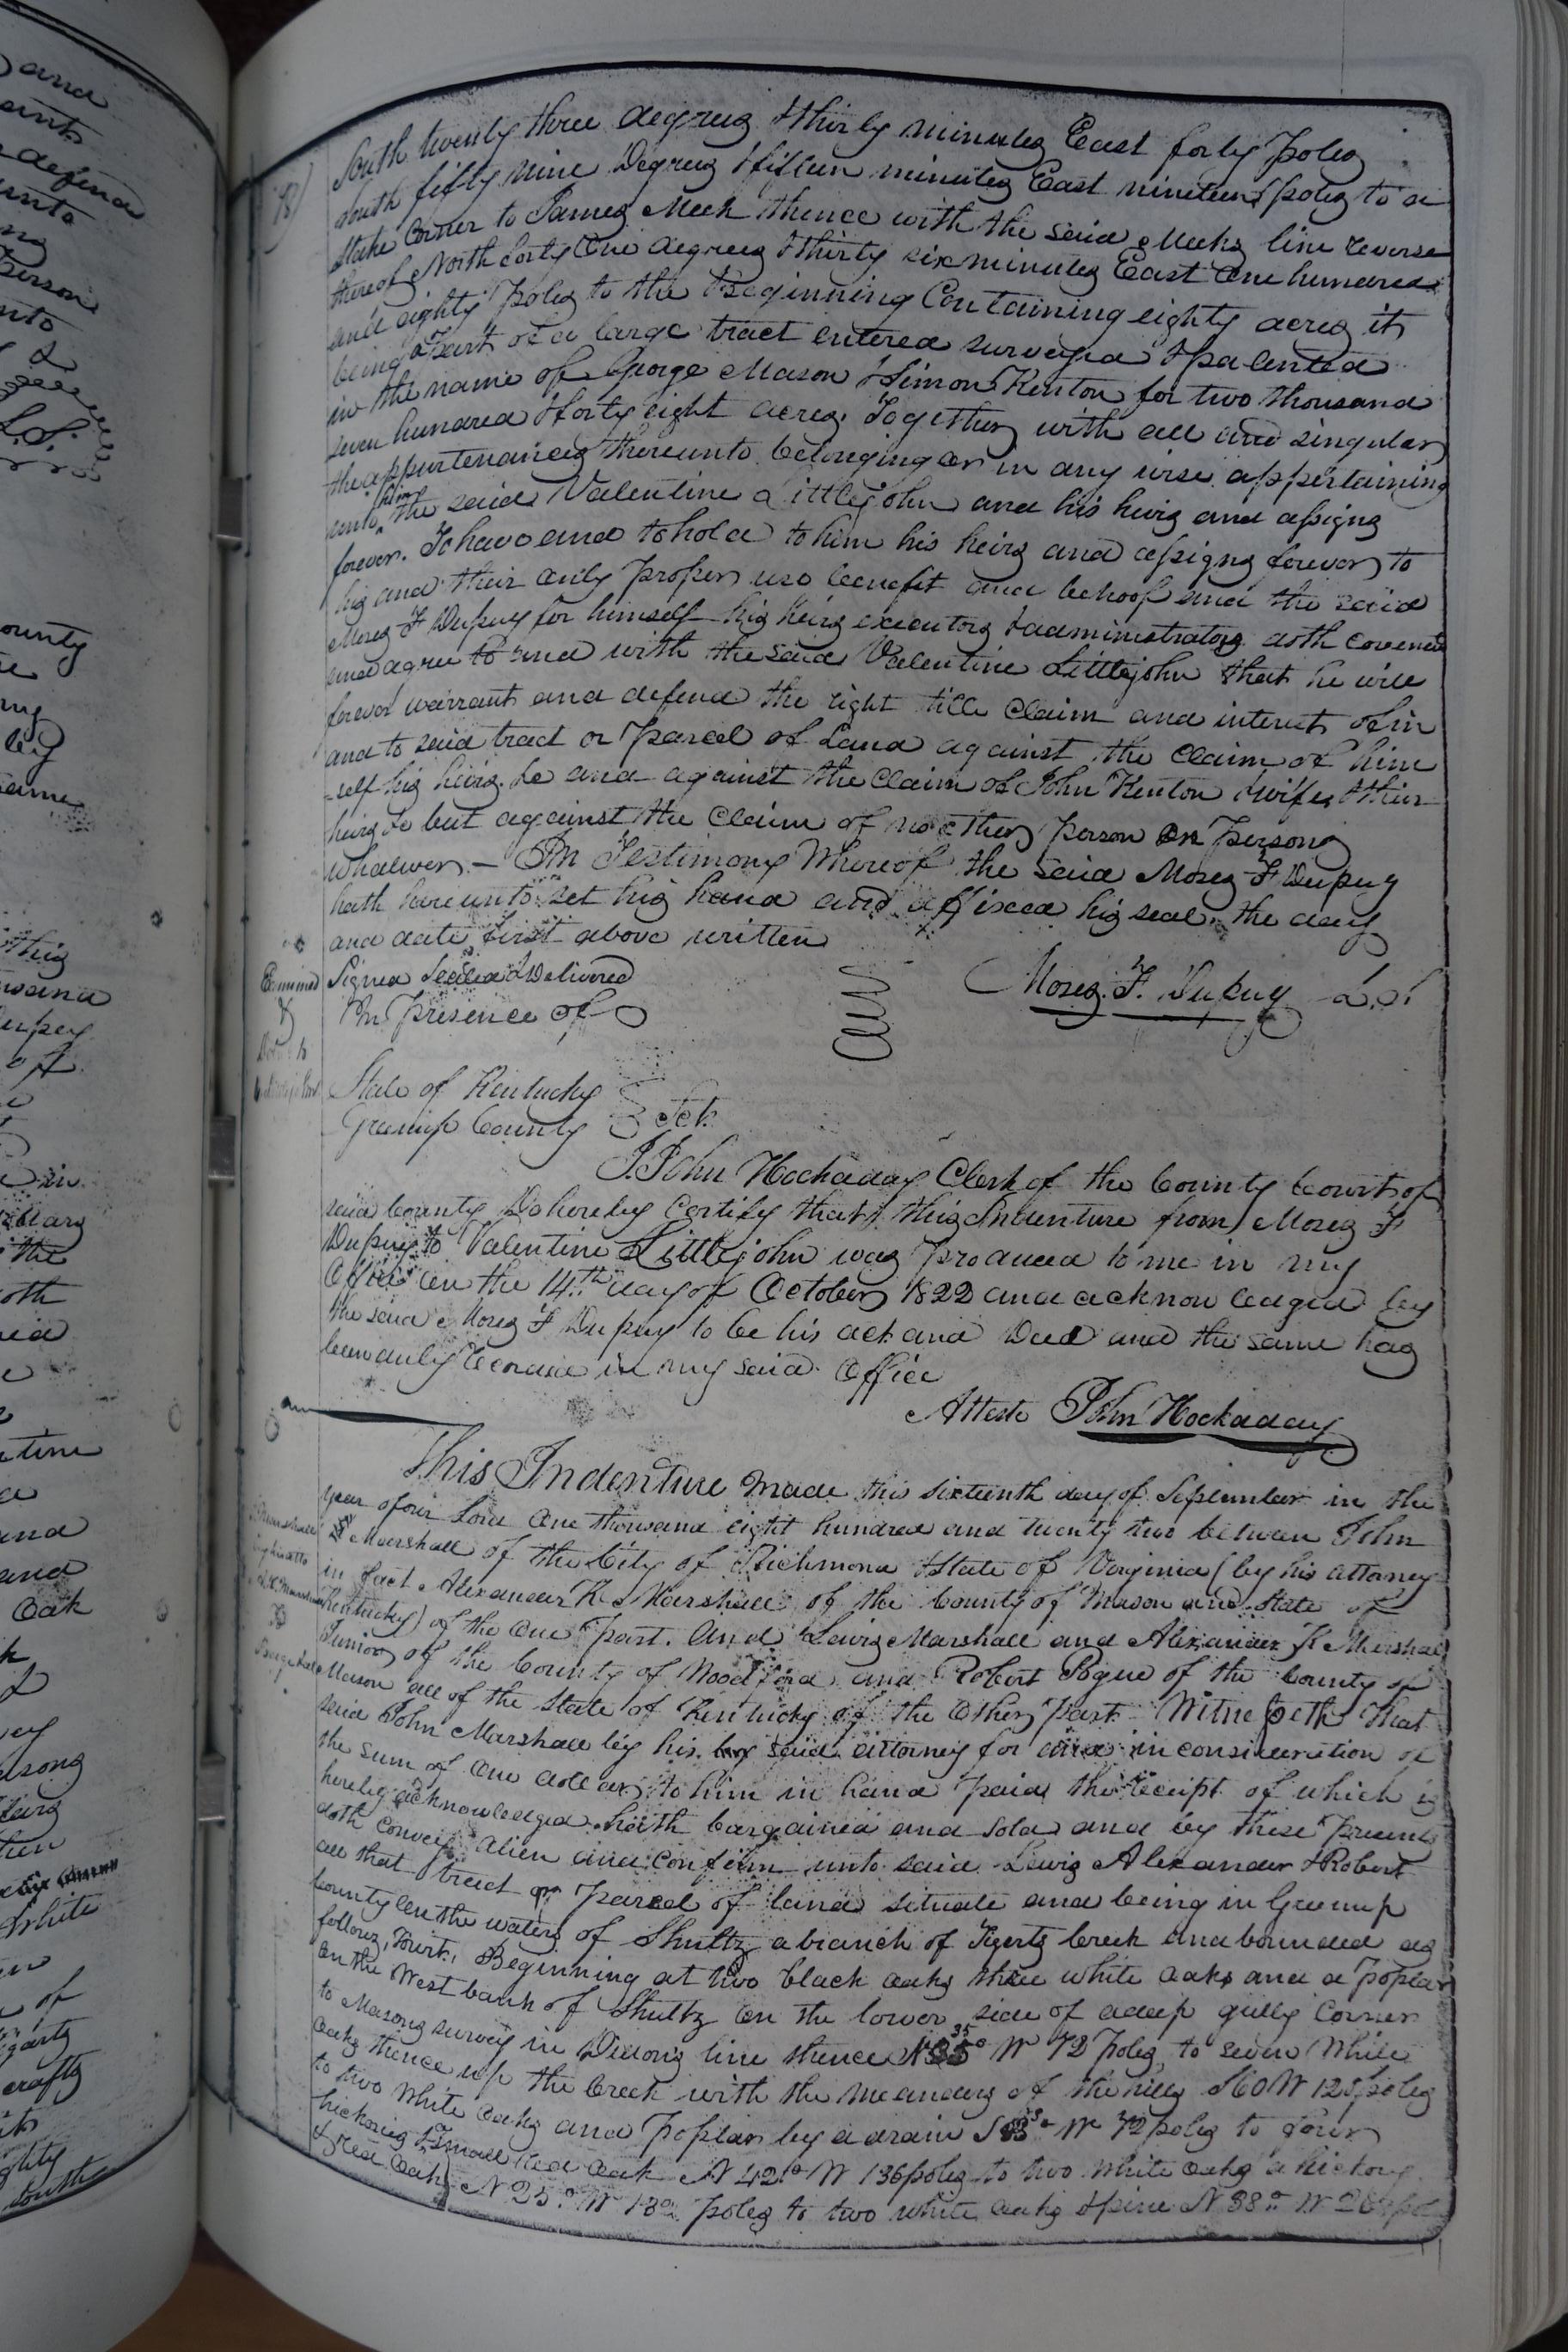 South twenty three degrees & thirty minutes East forty poles
South fifty nine Degrees & fifteen minutes East nineteen poles to a
Stake Corner to James Meek thence with the said Meeks line reverse
thereof North forty One degrees & thirty six minutes East One hundred
and eighty poles to the Beginning Containing eighty acres it
being a part of a large tract entered surveyed & patented
in the name of George Mason & Simon Kenton for two thousand
seven hundred & forty eight acres. Together with all and singular
the appurtenances thereunto belonging or in any wise appertaining
unto him the said Valentine Littlejohn and his heirs and assigns
forever. To have and to hold to him his heirs and assigns forever to
his and their only proper use benefit and behoof and the said
Moses F Dupuy for himself his heirs executors & administrators doth covenant
and agree to and with the said Valentine Littlejohn that he will
forever warrant and defend the right title Claim and interest of in
and to said tract or Parcel of Land against the Claim of him
self his heirs &c and against the Claim of John Kenton & wife & their
heirs &c but against the Claim of no other person or Persons
whatever — In Testimony Whereof the said Moses F Dupuy
hath hereunto set his hand and affixed his seal the day
and date first above written
Signed Sealed & Delivered
In Presence of
Moses F. Dupuy L.S.
Examined
&
State of Kentucky
Greenup County Sct.
I John Hockaday Clerk of the County Court of
said County Do hereby Certify that this Indenture from Moses F
Dupuy to Valentine Littlejohn was produced to me in my
Office on the 14th day of October 1822 and acknowledged by
the said Moses F Dupuy to be his act and Deed and the same has
been duly Recorded in my said Office
Atteste John Hockaday
This Indenture made this sixteenth day of September in the
year of our Lord One thousand eight hundred and twenty two between John
Marshall of the City of Richmond & State of Virginia (by his attorney
in fact Alexander K Marshall of the County of Mason and State of
Kentucky) of the One Part. And Lewis Marshall and Alexander K Marshall
Junior of the County of Woodford and Robert Pogue of the County of
Mason all of the State of Kentucky of the Other Part Witnesseth that
said John Marshall by his said attorney for and in consideration of
the sum of One dollar to him in hand Paid the Receipt of which is
hereby acknowledged hath bargained and sold and by these Presents
doth convey alien and confirm unto said Lewis Alexander & Robert
all that tract or Parcel of land situate and being in Greenup
County On the waters of Shultz a branch of Tygerts Creek and bounded as
follows, Towit, Beginning at two black oaks three white oaks and a Poplar
On the West bank of Shultz On the lower side of a deep gully Corner
to Masons survey in Dixons line thence N 35° W 72 Poles, to seven White
Oaks thence up the Creek with the meanders of the hills S 60 W 125 poles
to two White Oaks and Poplar by a drain S 83° W 72 poles to four
hickorys & Small Red Oak N 42° W 136 poles to two White Oaks a hickory
& red Oak N 25° W poles to two white oaks & pine N 38° W